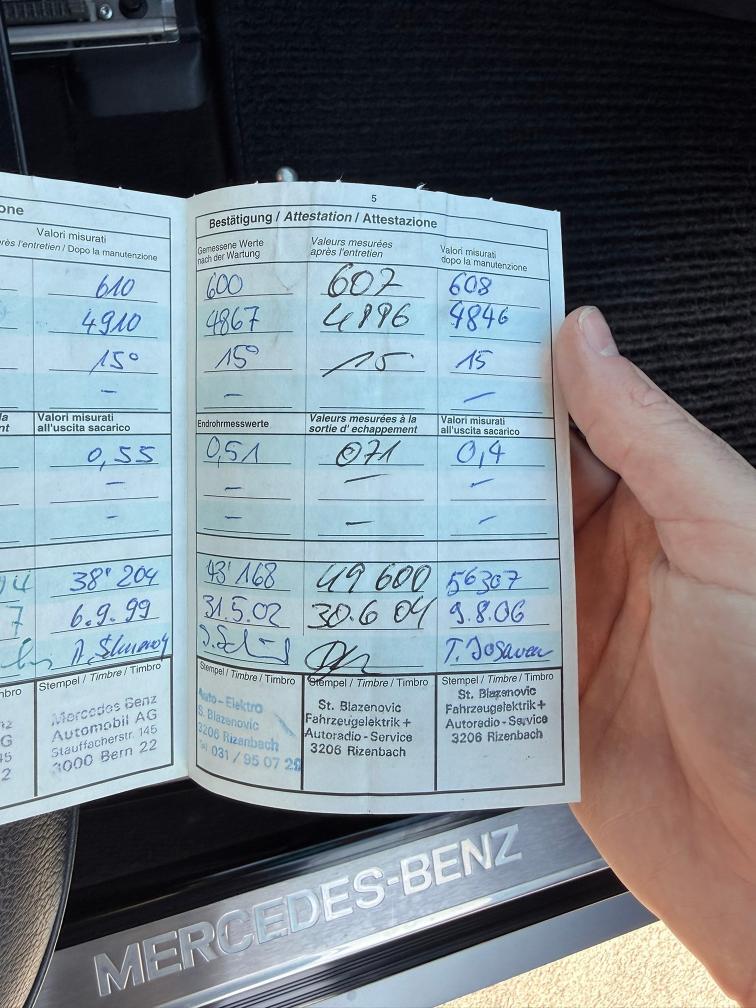 one
Valori misurati
rès l'entretien / Dopo la manutenzione
610
4910
15°
–
la
nt
Valori misurati
all'uscita sacarico
0,55
38' 204
7
6.9.99
mbro
Stempel / Timbre / Timbro
Mercedes Benz
Automobil AG
Stauffacherstr. 145
3000 Bern 22
nz
G
45
2
5
Bestätigung / Attestation / Attestazione
Gemessene Werte
nach der Wartung
Valeurs mesurées
après l'entretien
Valori misurati
dopo la manutenzione
600 602 608
4867 4896 4846
15° 15 15
– –
Endrohrmesswerte
Valeurs mesurées à la
sortie d' echappement
Valori misurati
all'uscita sacarico
0,51 071 0,4
– – –
– – –
43' 168 49 600 56307
31.5.02 30.6 04 9.8.06
Stempel / Timbre / Timbro Stempel / Timbre / Timbro Stempel / Timbre / Timbro
Auto - Elektro
S. Blazenovic
3206 Rizenbach
Tel 031 / 95 07 29
St. Blazenovic
Fahrzeugelektrik +
Autoradio - Service
3206 Rizenbach
St. Blazenovic
Fahrzeugelektrik +
Autoradio - Service
3206 Rizenbach
MERCEDES-BENZ